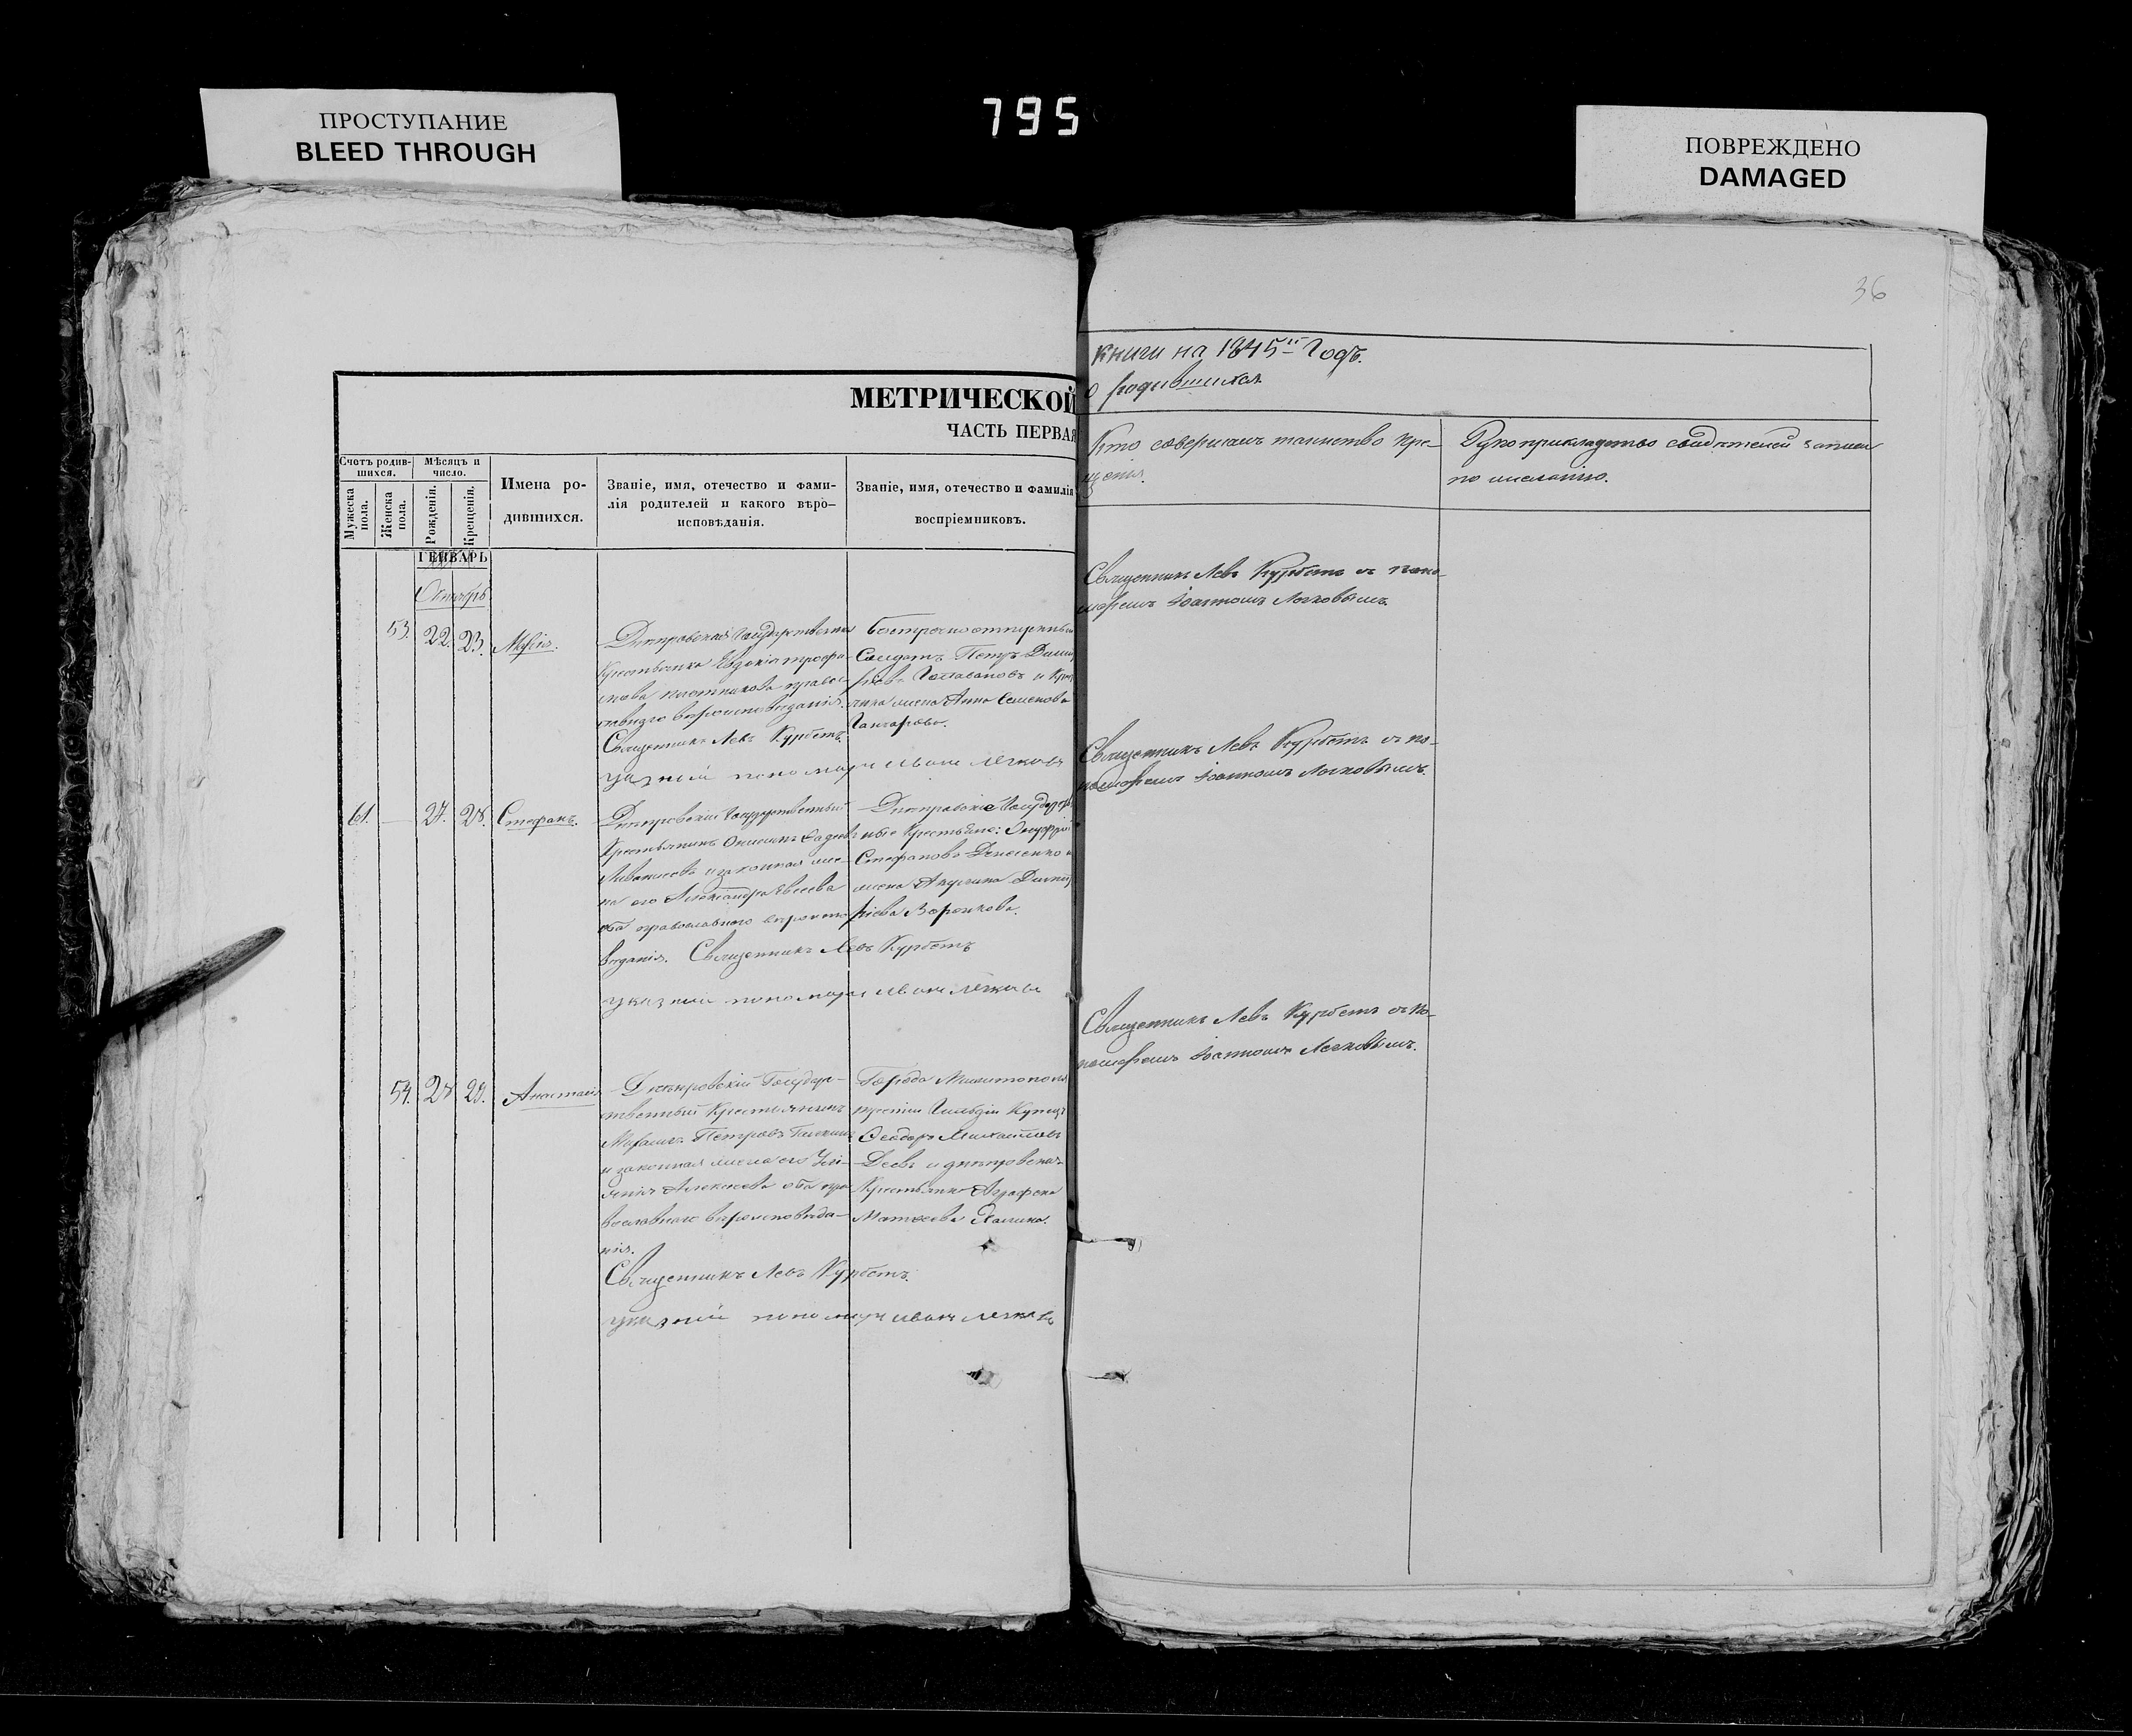 795
ПРОСТУПАНИЕ
BLEED THROUGH
ПОВРЕЖДЕНО
DAMAGED
36
МЕТРИЧЕСКОЙ
ЧАСТЬ ПЕРВАЯ
книги на 1845й Годъ.
о родившихся
Счетъ родив-
шихся.
Мѣсяцъ и
число.
Мужеска
пола.
Женска
пола.
Рожденія.
Крещенія.
Имена ро-
дившихся.
Званіе, имя, отечество и фами-
лія родителей и какого вѣро-
исповѣданія.
Званіе, имя, отечество и фамилія
воспріемниковъ.
Кто совершалъ таинство кре-
щенія.
Рукоприкладство свидѣтелей записи
по желанію.
ГЕНВАРЬ
Октябрь
53.
22.
23.
Днѣпровская Государственная
Крестьянка Евдокія Трофи-
мова православ-
наго вѣроисповѣданія.
Священникъ Левъ Курбетъ.
указний пономарь иванъ легковъ
Безсрочноотпускный
Солдатъ Петръ Дмит
ріевъ и Крес
жена Анна Семенова
Священникъ Левъ Курбетъ съ поно-
маремъ Іоанномъ Легковымъ.
61.
27.
28.
Стефанъ.
Днѣпровскій Государственный
Крестьянинъ
и законная же-
на его Александра Евсеева
оба православнаго вѣроиспо
вѣданія. Священникъ Левъ Курбетъ
указний пономарь иванъ легковъ
Днѣпровскіе Государствен
ные Крестьяне: Онуфрій
Стефановъ Денисенко и
жена Акулина Дмит
ріева Воронкова.
Священникъ Левъ Курбетъ съ по-
номаремъ Іоанномъ Легковымъ.
54.
28
29.
Анастасія
Днѣпровскій Государ-
ственный Крестьянинъ
Петровъ
и законная жена его Уль-
янія Алексеева оба пра
вославнаго вѣроисповѣда-
нія.
Священникъ Левъ Курбетъ.
указний пономарь иванъ легковъ
Города Мелитополя
третій Гильдіи Купецъ
Феодоръ Михайловъ
Деевъ и днѣпровская
Крестьянка Аграфена
Матвеева
Священникъ Левъ Курбетъ съ по-
номаремъ Іоанномъ Легковымъ.